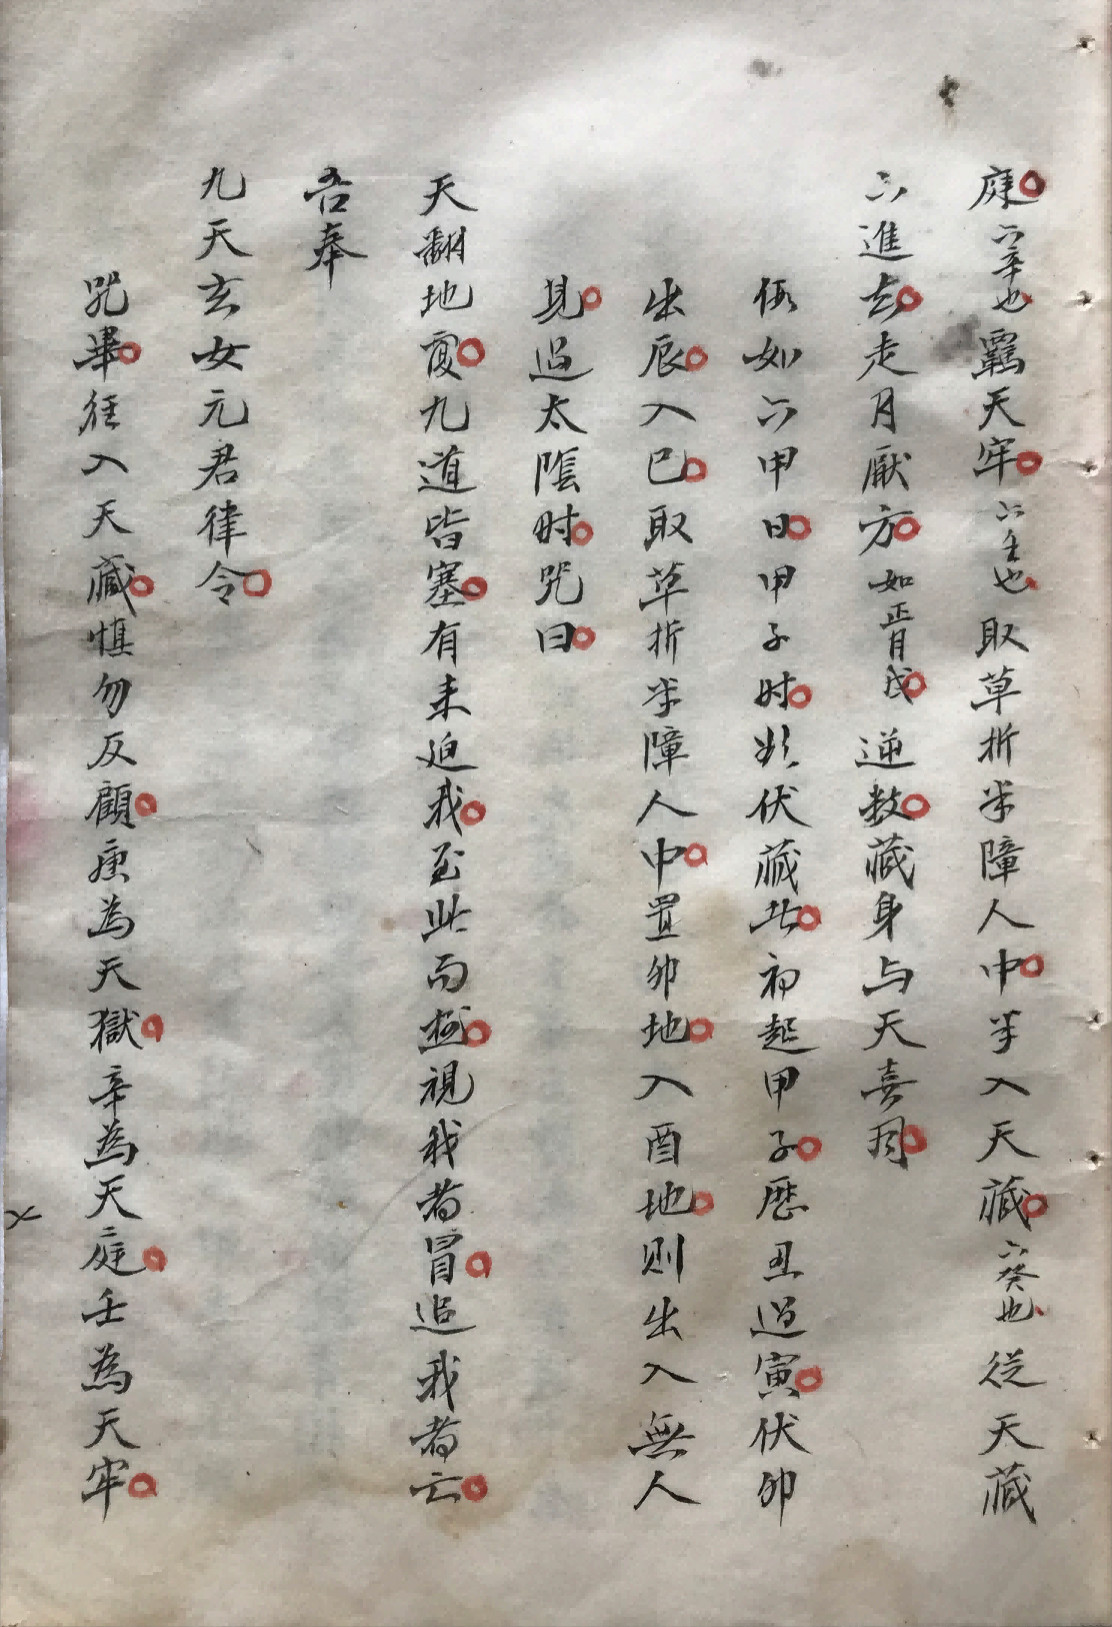 庭六辛也覊天牢六壬也取草折半障人中半入天藏六癸也從天藏
六進去走月厭方如正月戌逆数藏身与天喜同
假如六甲日甲子时將伏藏北初起甲子歷丑過寅伏卯
出辰入巳取草折半障人中置卯地入酉地则出入無人
見過太陰时咒曰
天翻地覆九道皆塞有来迫我至此而極視我者冒追我者亡
吾奉
九天玄女元君律令
咒畢徑入天藏慎勿反顧庚為天獄辛為天庭壬為天牢